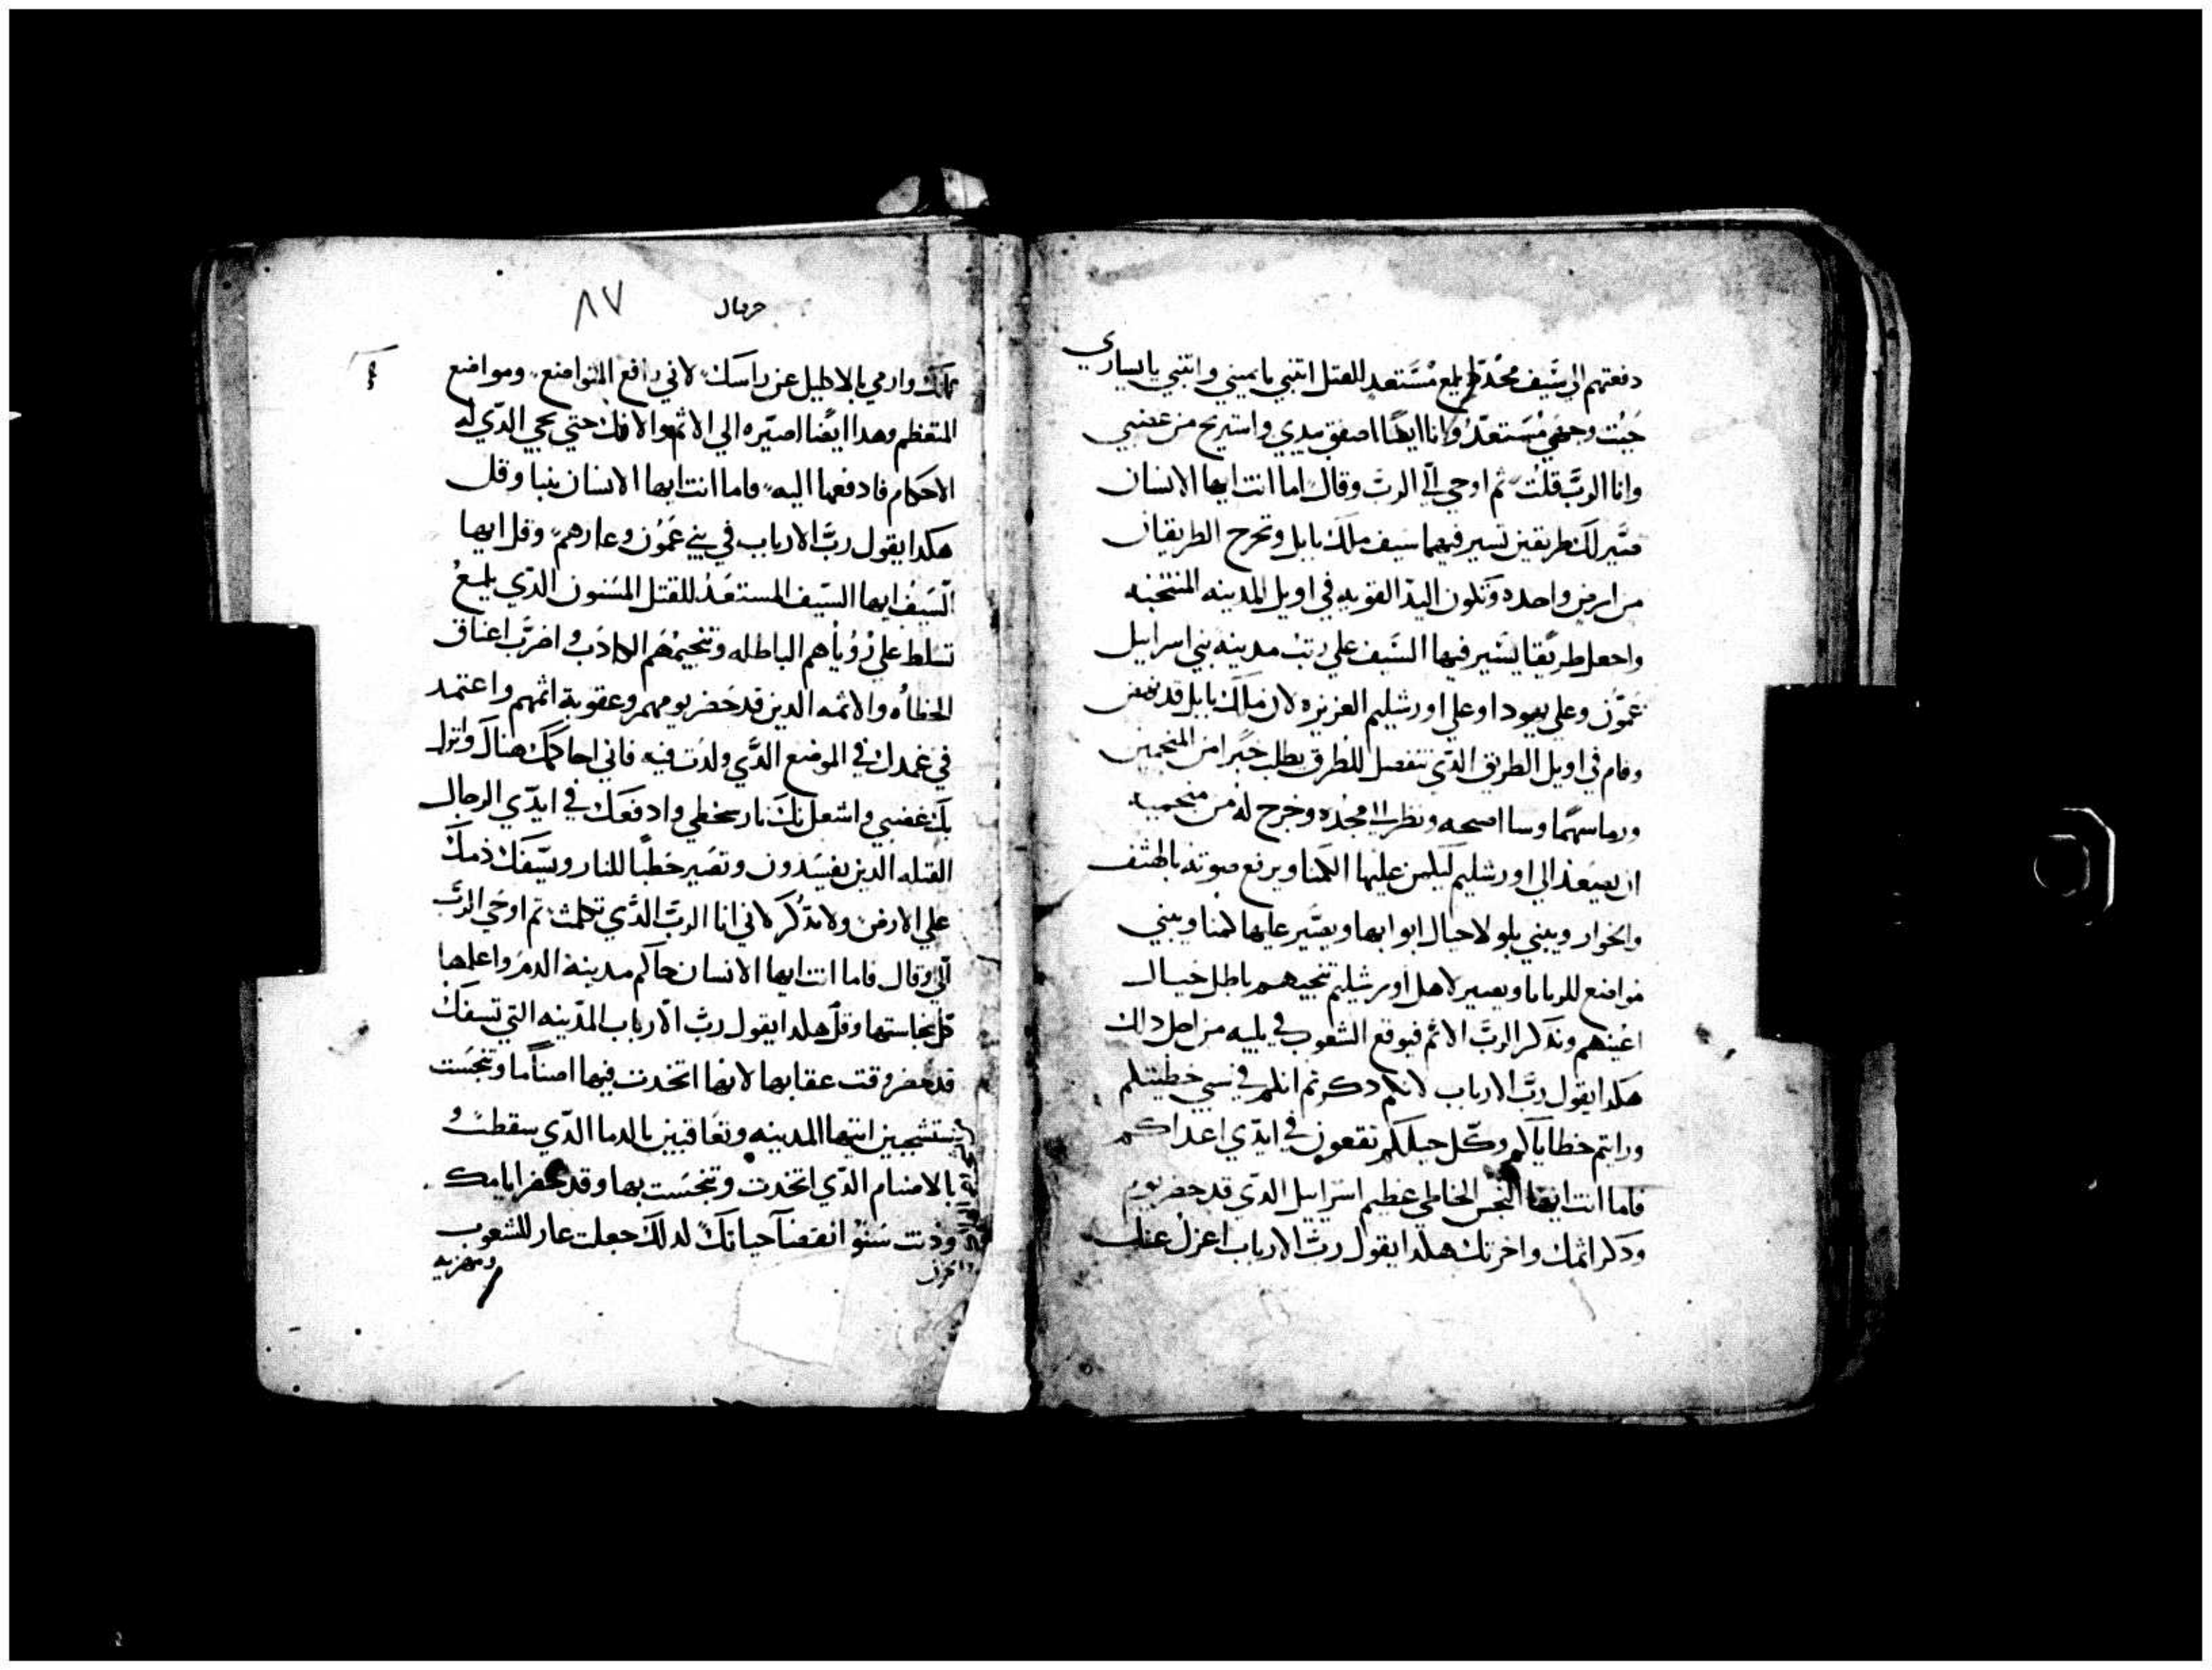 دفعتهم الي سَّيف محُدّد يلمع مُسَّتعد للقتل اتبي يا يميني واتبي يا يساري
حَيثُ وجهي مُسَتعدُ وانا ايضًا اصفق بيدي واستريح من غضبي
وانا الربَّ قلتُ ثم اوحي الَي الربَّ وقال اما انت ايها الانسان
صَيّر لك طريقين تسير فيهما سيف ملك بابل وتخرج الطريقان
من ارض واحده وتكون اليد القويه في اويل المدينه المنتخبه
واجعل طريقا يسَير فيها السَّيف علي ربَت مدينه بني اسراييل
عَموّن وعلي يهودا وعلي اورشليم العزيزه لان ملك بابل قد نهض
وقام في اويل الطريق الذي تنفصل للطرق يطلب خبرا من المنجمين
ورما سهمًا وسا اصحه ونظر الا مجده وخرج له من منجميه
ان يصَعد الي اورشليم ليكمن عليها الكمنا ويرفع صوته بالهتف
والخوار ويبني بلولا حيال ابوابها ويصَير عليها كمنا ويبني
مواضع للرمايا ويصير لاهل اورشليم تنجيهم باطل حيال
اعينهم وتذكر الربَّ الاثم فيوقع الشعوب في بليه من اجل ذلك
هكذا يقول ربَّ الارباب لانكم ذكرتم اثمكم في نسي خطيتكم
ورايتم خطاياكم وكل حيلكم تقعون في ايدّي اعداكم
فاما انت ايها النجس الخاطي عظيم اسراييل الذي قد حضر يوم
وذكر اثمك واخرتك هكذا يقول ربَّ الارباب اعزل عنك
حرقيال ٨٧
وارمي بالاكليل عن راسَك لاني رافع المتواضع ومواضع
المتعظم وهذا ايضًا اصيّره الي الاثم والافك حتي يجي الذّي له
الاحكام فادفعها اليه فاما انت ايها الانسان تنبا وقل
هكذا يقول ربَّ الارباب في بني عَمُون وعارهم وقل ايها
السَّيفُ ايها السَّيف المستعَدُ للقتل المسَنون الذّي يلمعُ
تسَلط علي رُوياهم الباطله وتنجيمُهم الكاذب واضربَ اعناق
الخطاه والاثمه الذين قد حَضر يومهم وعقوبة اثمهم واعتمد
في غمدك في الموضع الذَّي ولدت فيه فاني احاكمك هناك وانزل
بك غضبي واشعل بك نار سخطي وادفعَك في ايدّي الرجال
القتله الذين يفسَدون وتصَير حَطبًا للنار ويسَّفك دَمك
علي الارض ولا تذُكر لاني انا الربَّ الذَّي تكلمت ثم اوحي الربَّ
الَي وقال فاما انت ايها الانسان حاكم مدينة الدمُ واعلمها
كل نجاستها وقل هكذا يقول ربَّ الارباب المدّينه التي تسفك
قد حضر وقت عقابها لانها اتخدت فيها اصنامًا وتنجسَت
ستشجبين ايتها المدينه وتعاقبين بالدما الذّي سقطت
بالاصنام الذّي اتخدت وتنجسَت بها وقد حضر ايامك
ودنت سَنوُ انقضآ حياتك لدلك جعلت عار للشعوب